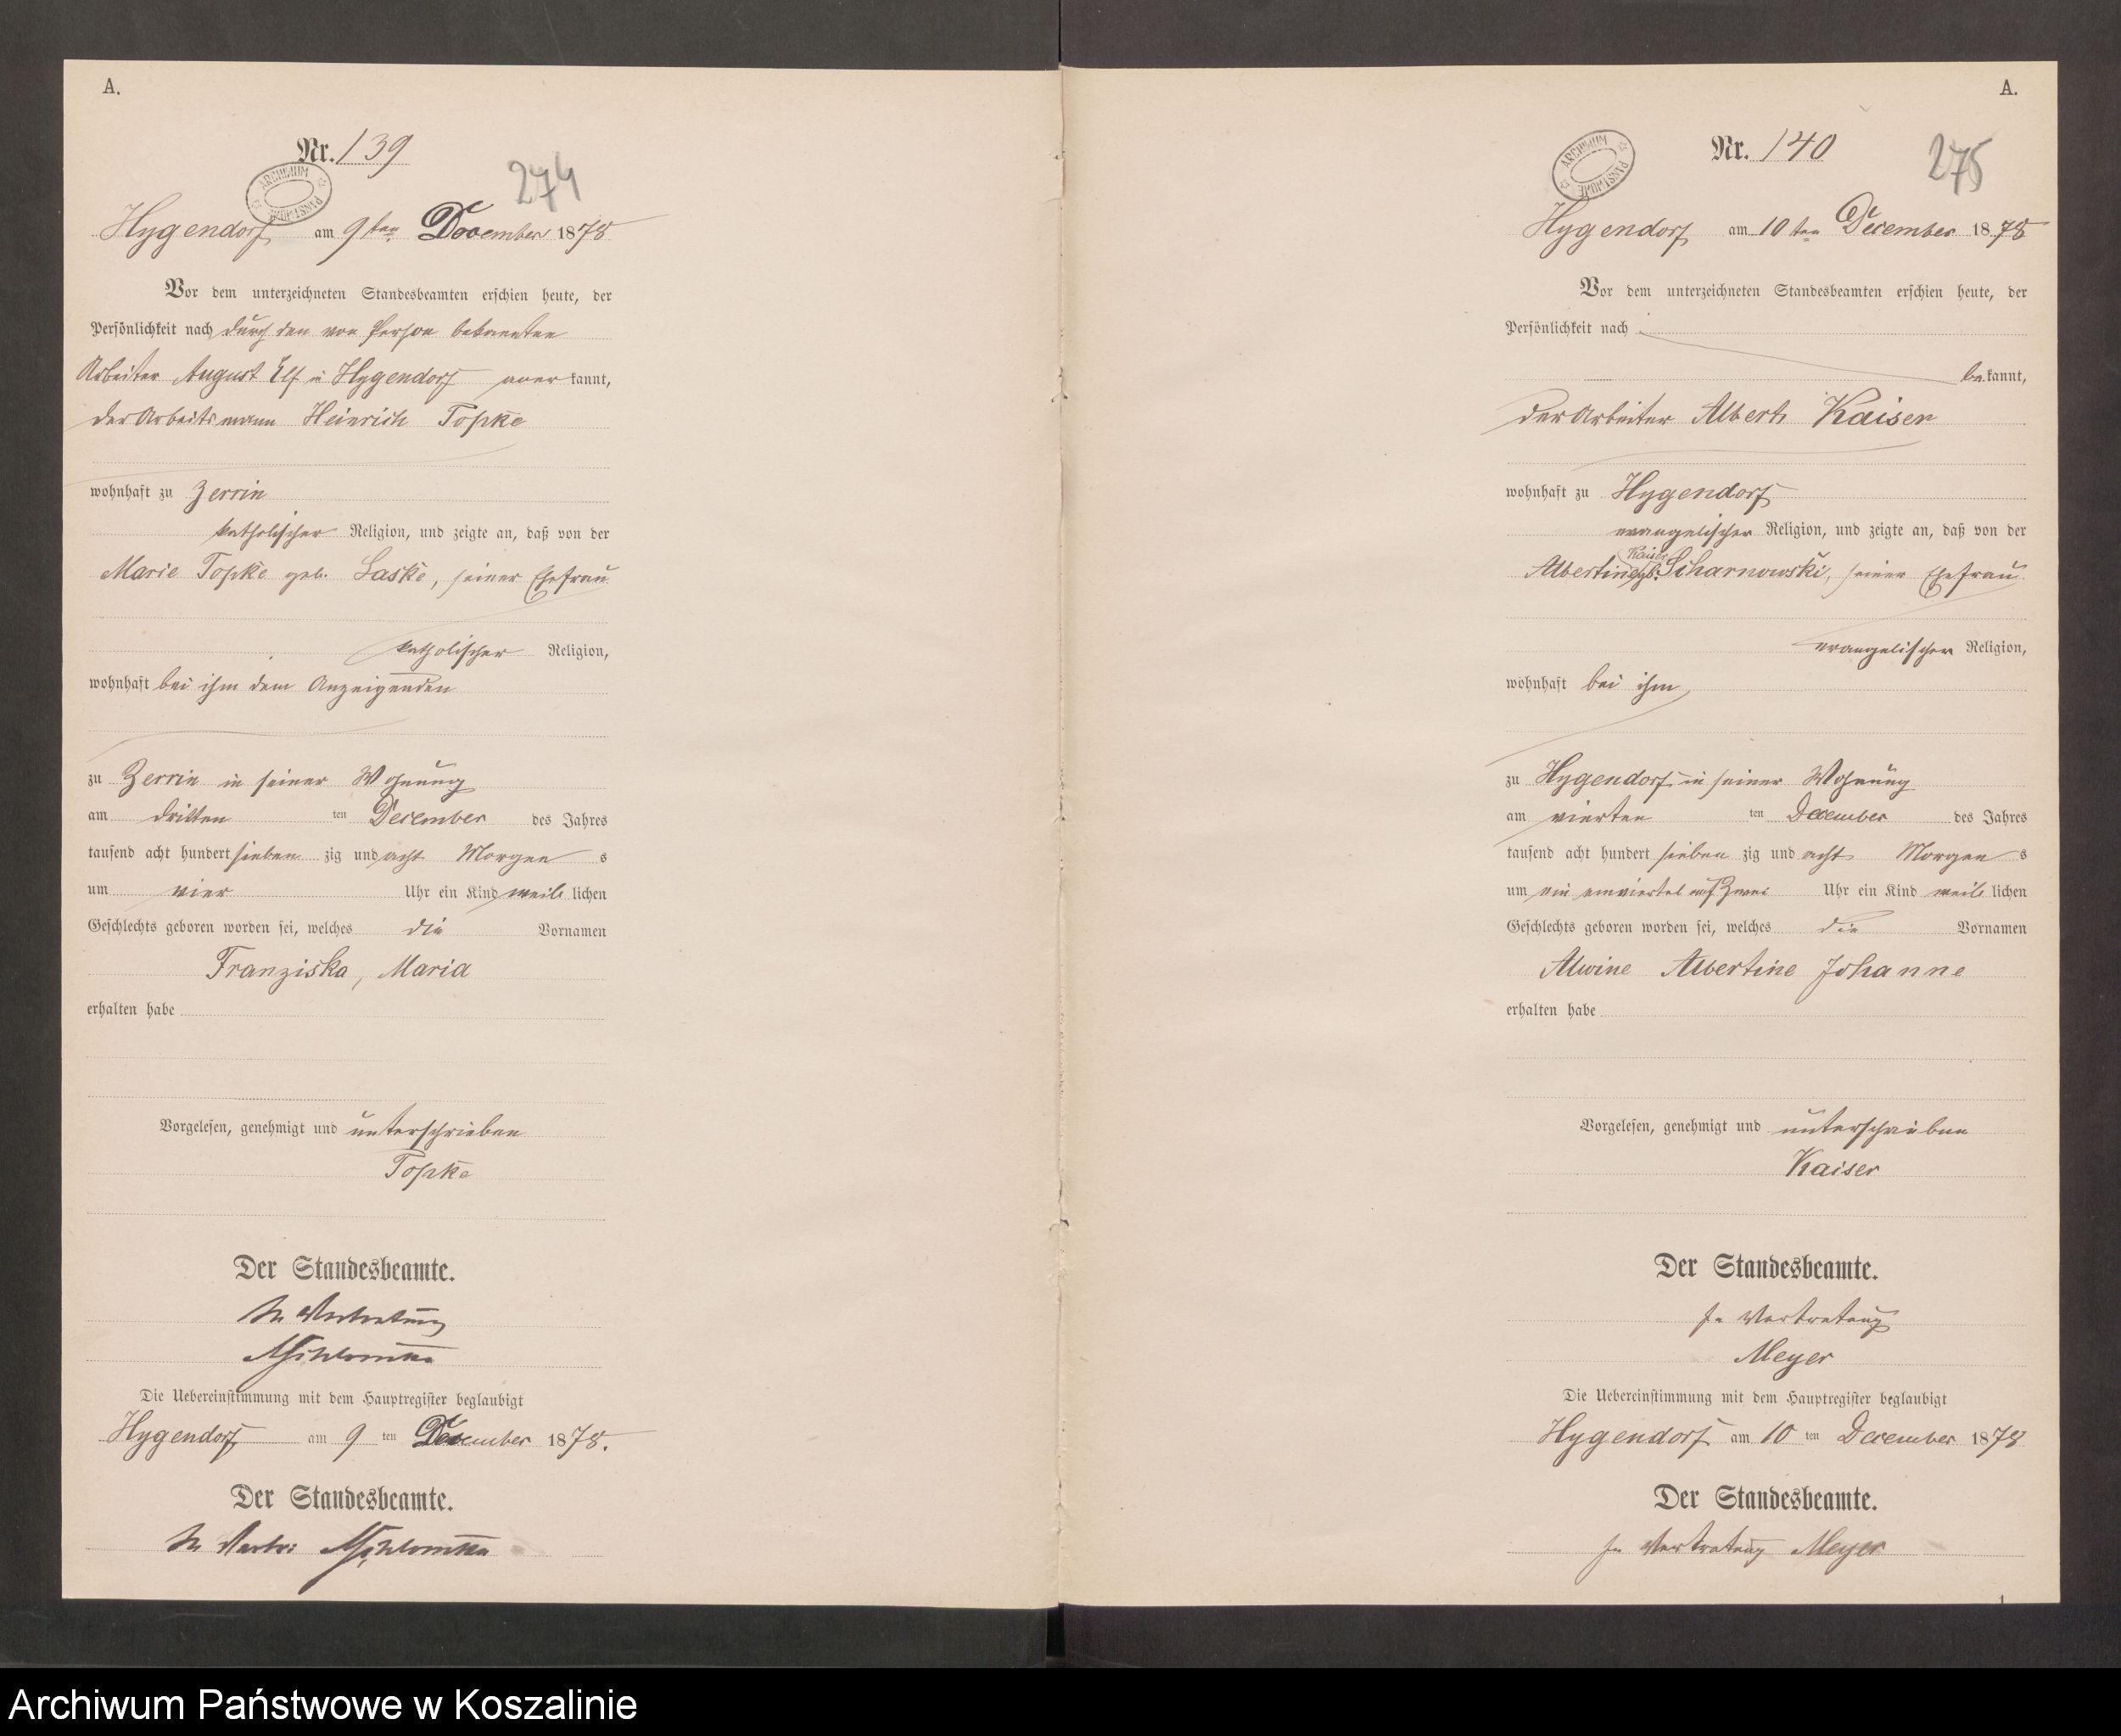 A.
Nr. 139
ARCHIWUM PAŃSTWOWE
274
Hygendorf am 9ten December 1878
Vor dem unterzeichneten Standesbeamten erschien heute, der
Persönlichkeit nach durch den von Person bekannten
Arbeiter August Elf in Hygendorf anerkannt,
der Arbeitsmann Heinrich Topke
wohnhaft zu Zerrin
katholischer Religion, und zeigte an, daß von der
Marie Topke geb. Laske, seiner Ehefrau
katholischer Religion,
wohnhaft bei ihm dem Anzeigenden
zu Zerrin in seiner Wohnung
am dritten ten December des Jahres
tausend acht hundert sieben zig und acht Morgen s
um vier Uhr ein Kind weib lichen
Geschlechts geboren worden sei, welches die Vornamen
Franziska, Maria
erhalten habe
Vorgelesen, genehmigt und unterschrieben
Topke
Der Standesbeamte.
In Vertretung
Die Uebereinstimmung mit dem Hauptregister beglaubigt
Hygendorf am 9 ten December 1878.
Der Standesbeamte.
In Vertr:
A.
Nr. 140
ARCHIWUM PAŃSTWOWE
275
Hygendorf am 10ten December 1878
Vor dem unterzeichneten Standesbeamten erschien heute, der
Persönlichkeit nach
bekannt,
der Arbeiter Albert Kaiser
wohnhaft zu Hygendorf
evangelischer Religion, und zeigte an, daß von der
Albertine Kaiser geb. Scharnowski, seiner Ehefrau
evangelischer Religion,
wohnhaft bei ihm
zu Hygendorf in seiner Wohnung
am vierten ten December des Jahres
tausend acht hundert sieben zig und acht Morgen s
um ein einviertel auf zwei Uhr ein Kind weib lichen
Geschlechts geboren worden sei, welches die Vornamen
Alwine Albertine Johanne
erhalten habe
Vorgelesen, genehmigt und unterschrieben
Kaiser
Der Standesbeamte.
In Vertretung
Meyer
Die Uebereinstimmung mit dem Hauptregister beglaubigt
Hygendorf am 10 ten December 1878
Der Standesbeamte.
In Vertretung Meyer
Archiwum Państwowe w Koszalinie